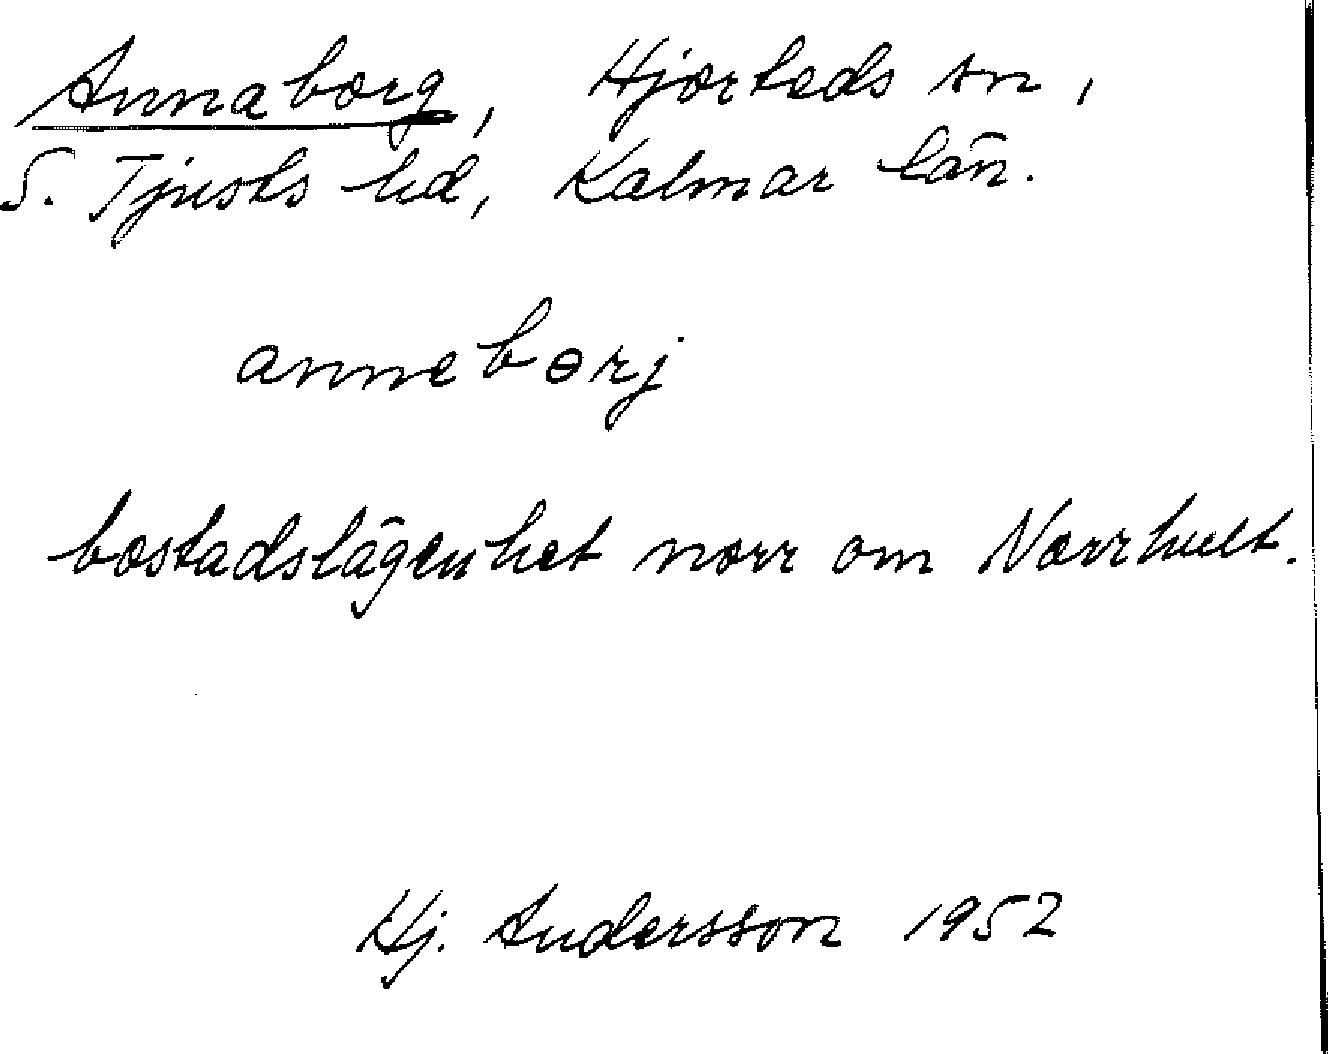 Annaborg, Hjorteds sn,
S. Tjusts hd, Kalmar län.
anneborj
bostadslägenhet norr om Norrhult.
Hj. Andersson 1952